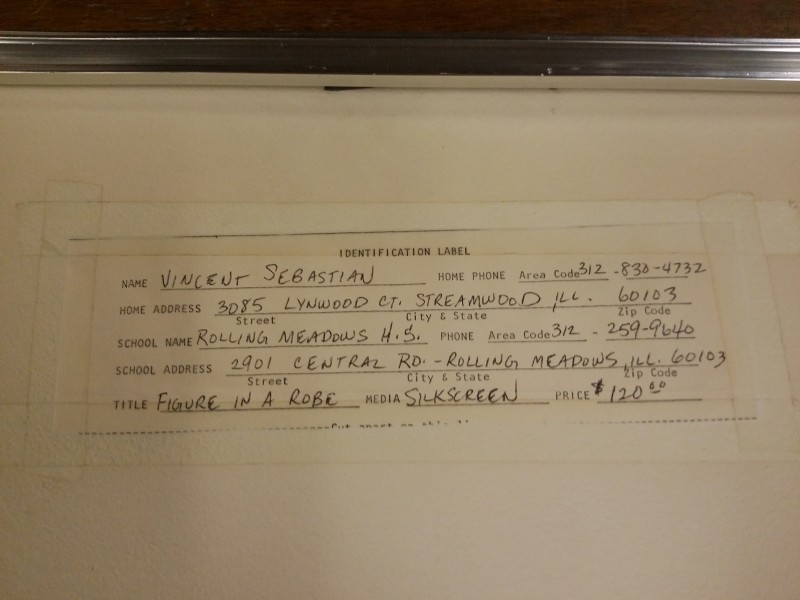 IDENTIFICATION LABEL
NAME VINCENT SEBASTIAN HOME PHONE Area Code 312 -830-4732
HOME ADDRESS 3085 LYNWOOD CT. STREAMWOOD, ILL. 60103
Street City & State Zip Code
SCHOOL NAME ROLLING MEADOWS H.S. PHONE Area Code 312 - 259-9640
SCHOOL ADDRESS 2901 CENTRAL RD. - ROLLING MEADOWS, ILL. 60103
Street City & State Zip Code
TITLE FIGURE IN A ROBE MEDIA SILKSCREEN PRICE $120.00